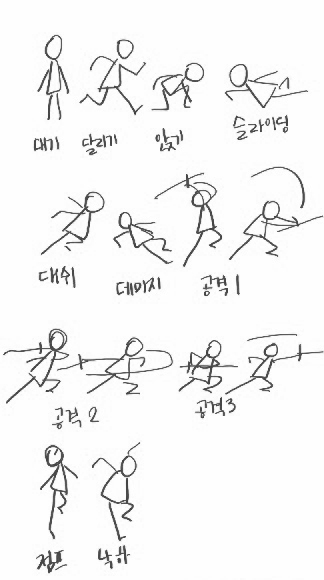 대기 달리기 앉기 슬라이딩
대쉬 데미지 공격 1
공격 2 공격3
점프 낙하